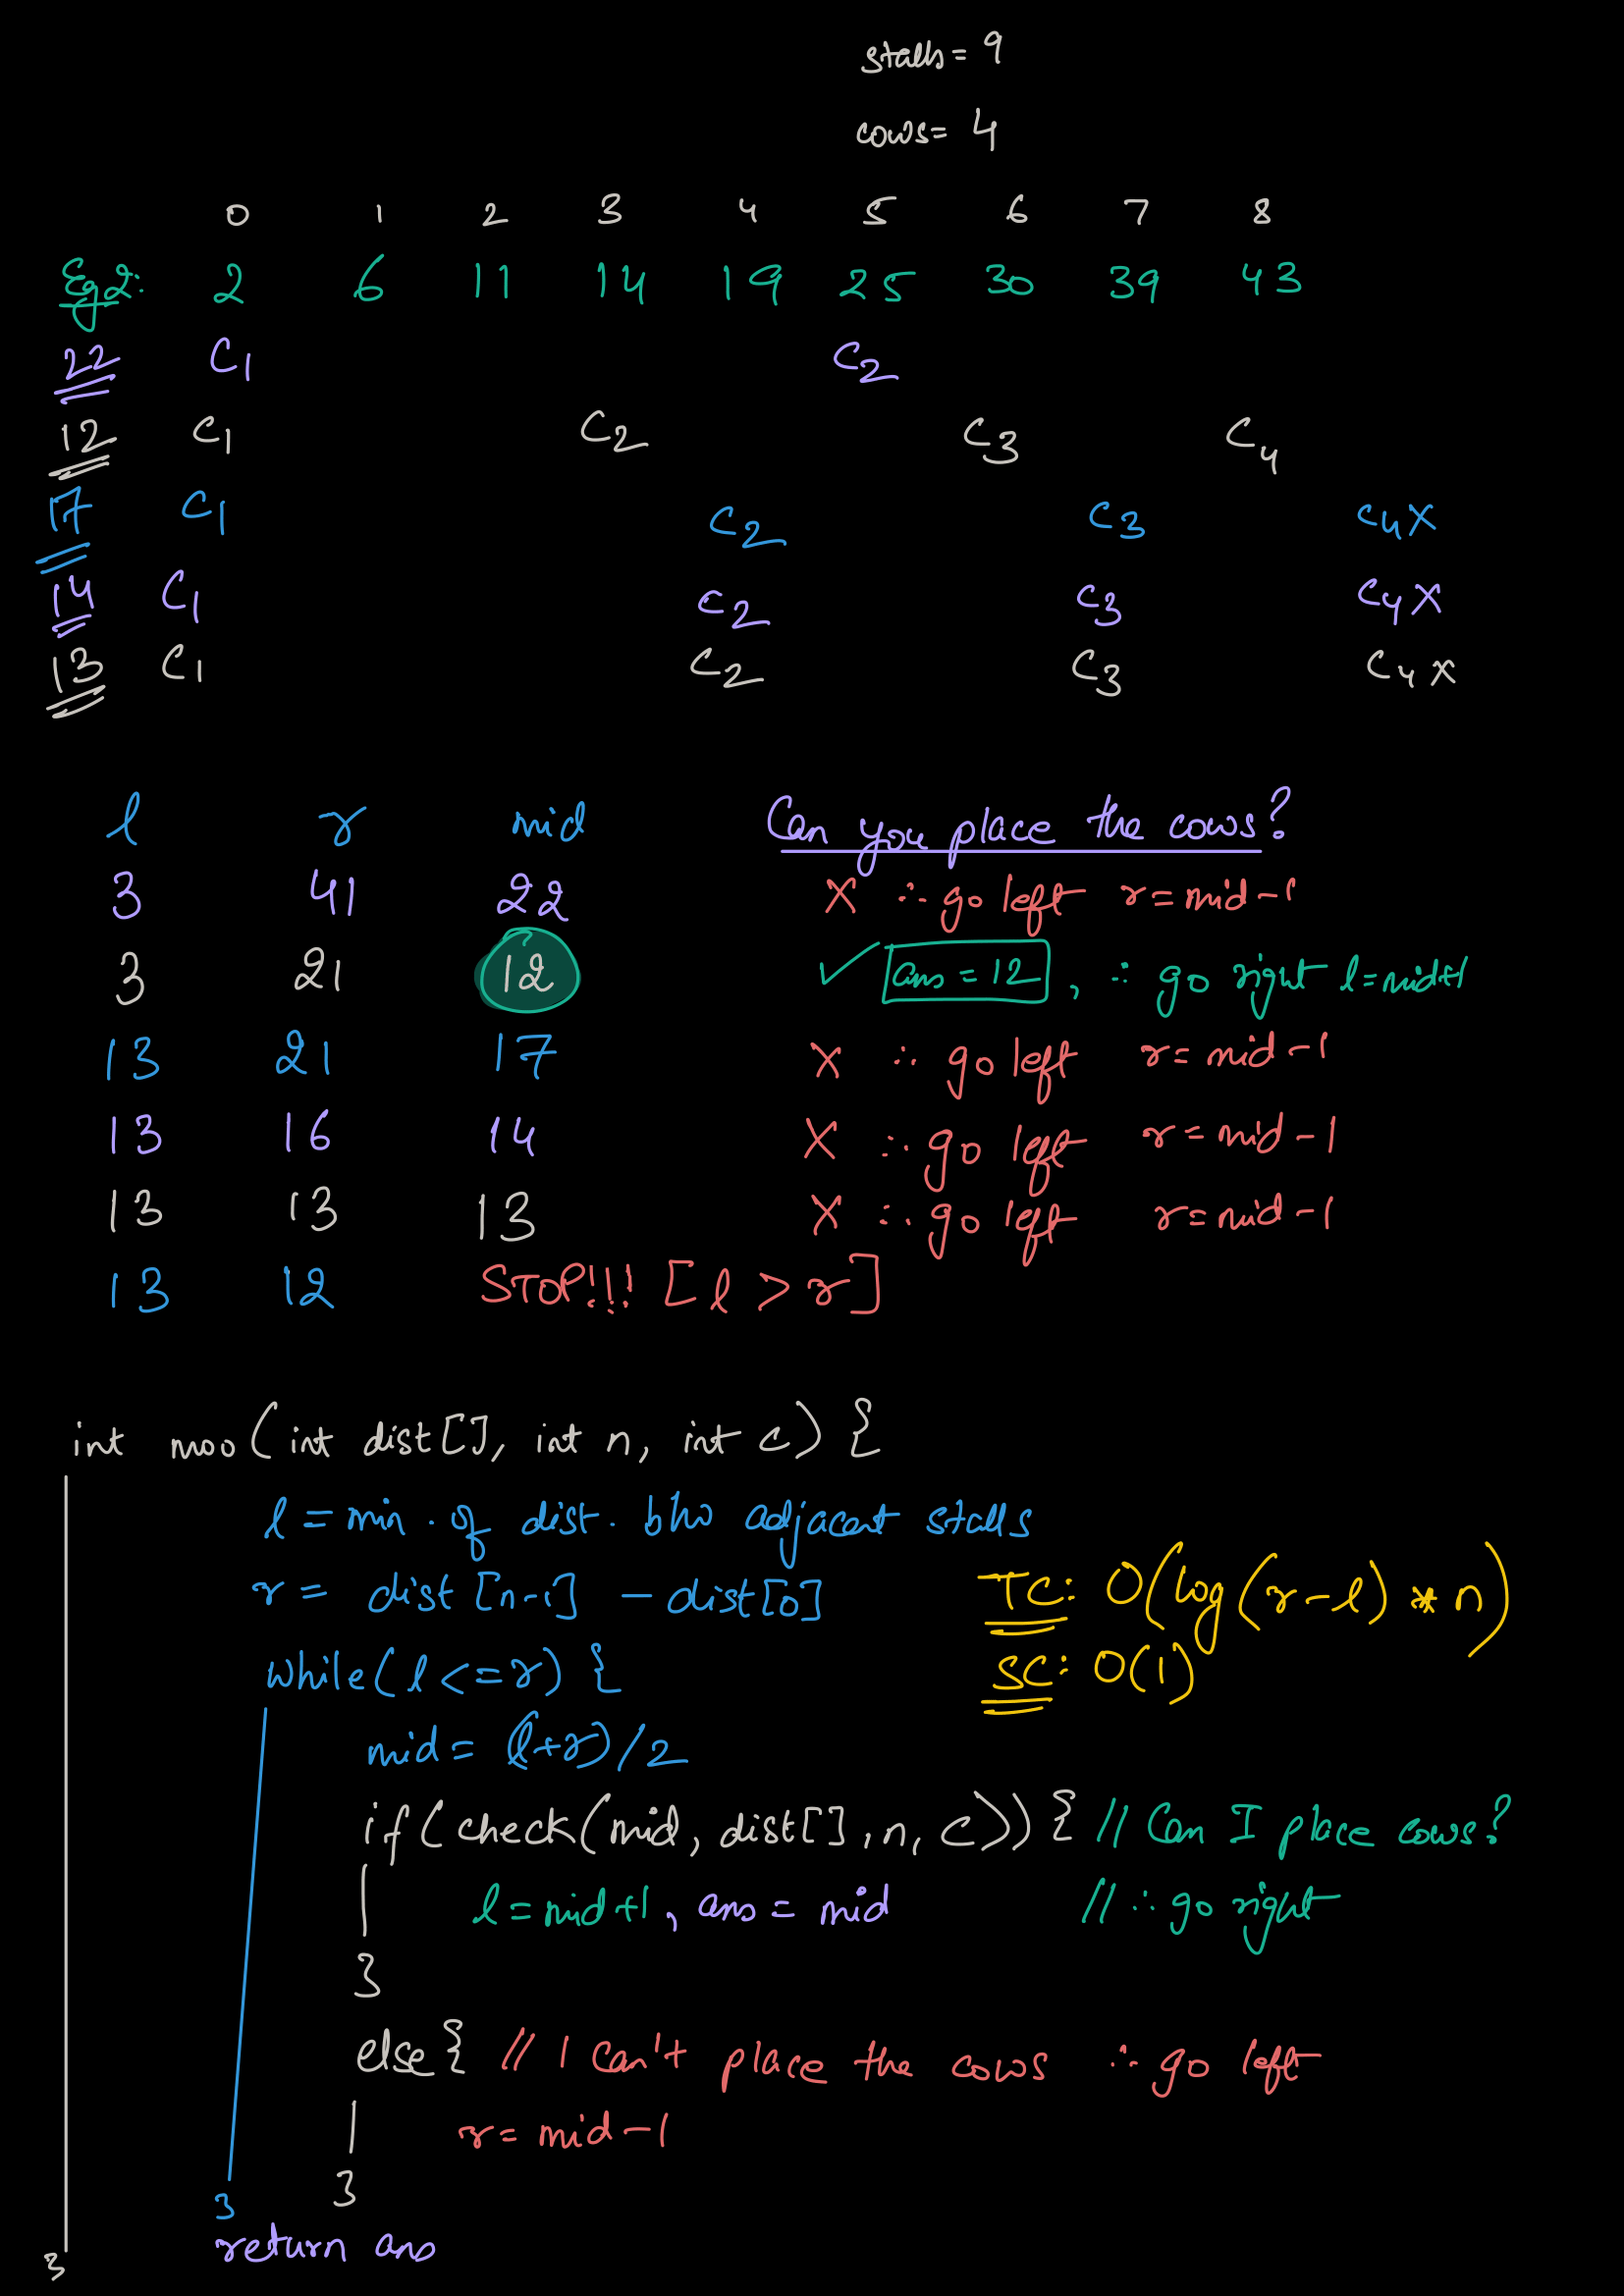 stalls = 9
cows = 4
0 1 2 3 4 5 6 7 8
Eg2: 2 6 11 14 19 25 30 39 43
22 C1 C2
12 C1 C2 C3 C4
17 C1 C2 C3 C4 X
14 C1 C2 C3 C4 X
13 C1 C2 C3 C4 X
l r mid Can you place the cows?
3 41 22 X ∴ go left r = mid - 1
3 21 12 ✓ ans = 12, ∴ go right l = mid+1
13 21 17 X ∴ go left r = mid - 1
13 16 14 X ∴ go left r = mid - 1
13 13 13 X ∴ go left r = mid - 1
13 12 STOP!!! [l > r]
int moo(int dist[], int n, int c) {
l = min. of dist. b/w adjacent stalls
r = dist[n-1] - dist[0]
TC: O(log(r-l) * n)
while(l <= r) {
SC: O(1)
mid = (l+r)/2
if(check(mid, dist[], n, c)) { // Can I place cows?
l = mid+1, ans = mid // ∴ go right
}
else { // I can't place the cows ∴ go left
r = mid - 1
}
}
return ans
}